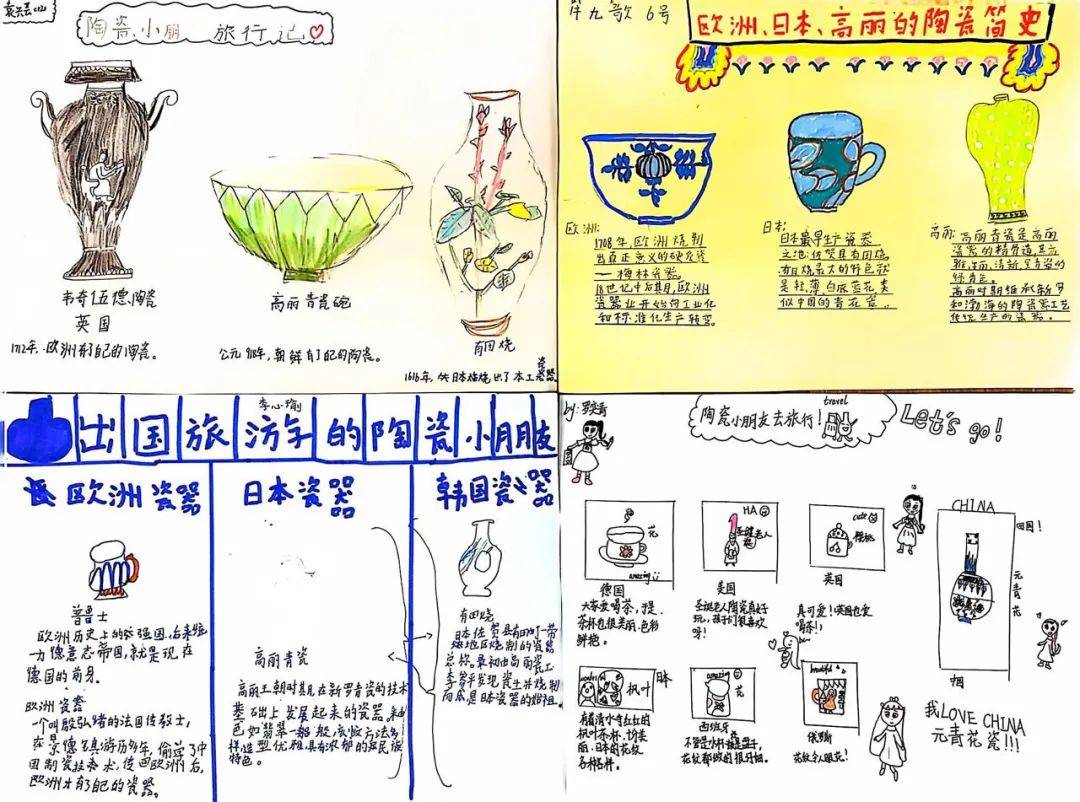 陶瓷小朋 旅行记
韦奇伍德陶瓷
英国
1712年，欧洲有了自己的陶瓷。
高丽青瓷碗
公元918年，朝鲜有了自己的陶瓷。
有田烧
6号
欧洲、日本、高丽的陶瓷简史
欧洲：
1708年欧洲烧制
出真正意义的硬质瓷
18世纪中后期，欧洲
瓷器业开始向工业化
和标准化生产转变。
日本：
日本最早生产瓷器
之地：佐贺县有田烧，
有田烧最大的特色就
是轻，薄白底蓝花类
似中国的青花瓷
高丽：
高丽青瓷是高丽
高丽时期继承新罗
和渤海的陶瓷工艺
李心瑜
出国旅游的陶瓷小朋友
欧洲瓷器
普鲁士
欧洲历史上的强国，后来统
一为德意志帝国，就是现在
德国的前身。
欧洲瓷器
一个叫殷弘绪的法国传教士，
在景德镇游历多年，偷学了中
国制瓷技术，传回欧洲后，
欧洲才有了自己的瓷器。
日本瓷器
高丽青瓷
高丽王朝时期在新罗青瓷的技术
基础上发展起来的瓷器
色如翡翠一般
样造型优雅具有浓郁的民族
特色。
韩国瓷器
有田烧
日本佐贺县有田町一带
地区烧制的瓷器
总称。最初由高丽瓷工
李参平发现瓷土并烧制
而成，是日本瓷器的始祖。
by:
陶瓷小朋友去旅行！
travel
Let's go!
花
amazing
德国
大家爱喝茶，
茶杯也很美丽，色彩
鲜艳。
HA
圣诞老人
美国
圣诞老人陶瓷真好
玩，孩子们很喜欢
呀！
cute
樱桃
英国
真可爱！英国也爱
喝茶！
CHINA
回国！
元青花
中国
枫叶
日本
有着清水寺红红的
枫叶茶杯
丽，日本的花纹
各种各样。
amazing
花
西班牙
beautiful
俄罗斯
我LOVE CHINA
元青花瓷!!!